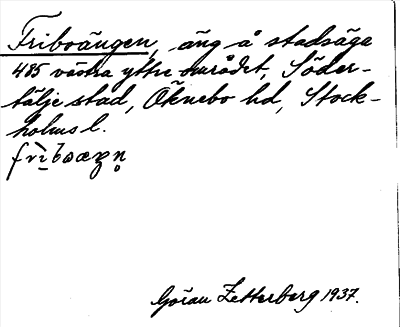 Friboängen, äng å stadsäga
485 västra yttre området, Söder-
tälje stad, Öknebo hd, Stock-
holms l.
Göran Zetterberg 1937.